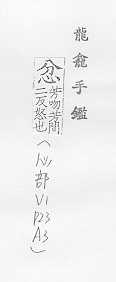 龍龕手鑑
忿
芳吻芳問
二反怒也
(心部
V1
P23
A3)